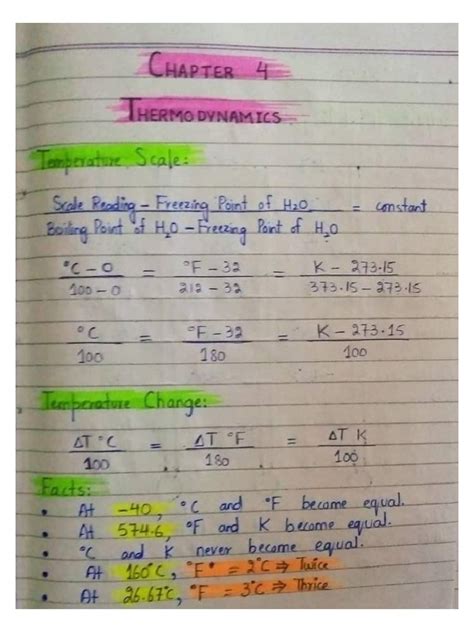 CHAPTER 4
THERMODYNAMICS
Temperature Scale:
Scale Reading - Freezing Point of H2O = constant
Boiling Point of H2O - Freezing Point of H2O
°C - 0 = °F - 32 = K - 273.15
100 - 0 212 - 32 373.15 - 273.15
°C = °F - 32 = K - 273.15
100 180 100
Temperature Change:
ΔT °C = ΔT °F = ΔT K
100 180 100
Facts:
• At -40, °C and °F become equal.
• At 574.6, °F and K become equal.
• °C and K never become equal.
• At 160°C, °F° = 2°C ⇒ Twice
• At 26.67°C, °F = 3°C ⇒ Thrice